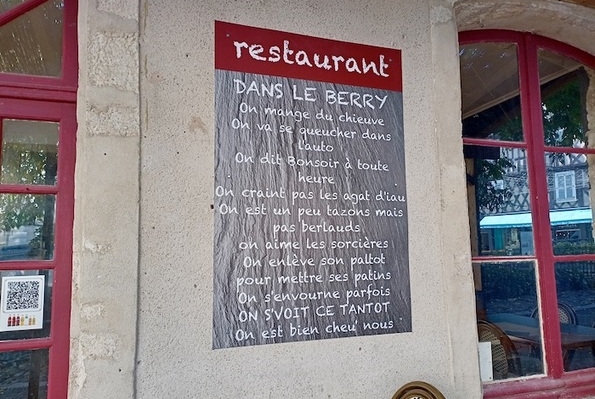 restaurant
DANS LE BERRY
On mange du chieuve
On va se queucher dans
l'auto
On dit Bonsoir à toute
heure
On craint pas les agat d'iau
On est un peu tazons mais
pas berlauds
on aime les sorcières
On enlève son paltot
pour mettre ses patins
On s'envourne parfois
ON SVOIT CE TANTOT
On est bien cheu' nous